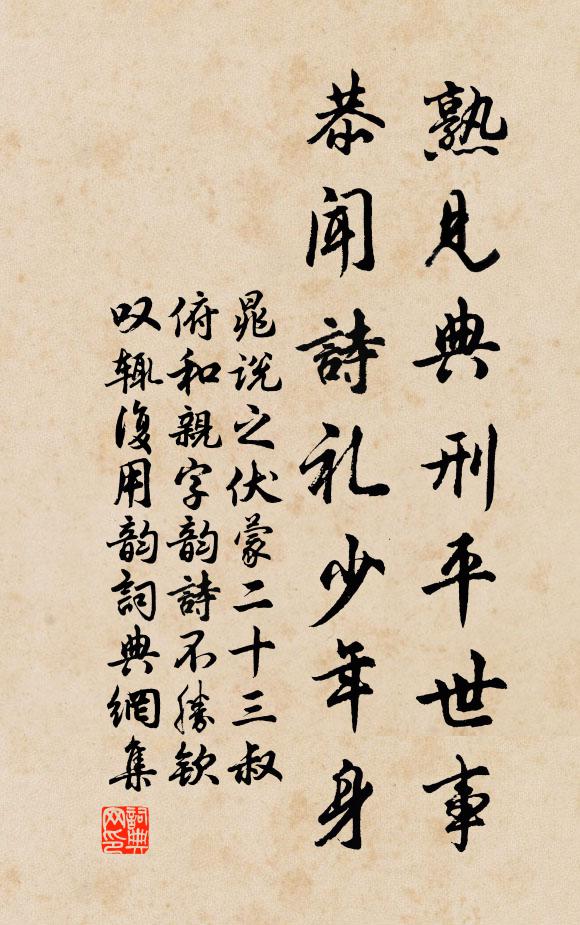 熟見典刑平世事
恭聞詩礼少年身
晁說之伏蒙二十三叔
俯和親字韵詩不勝欽
叹輒復用韵詞典網集
詞典网印